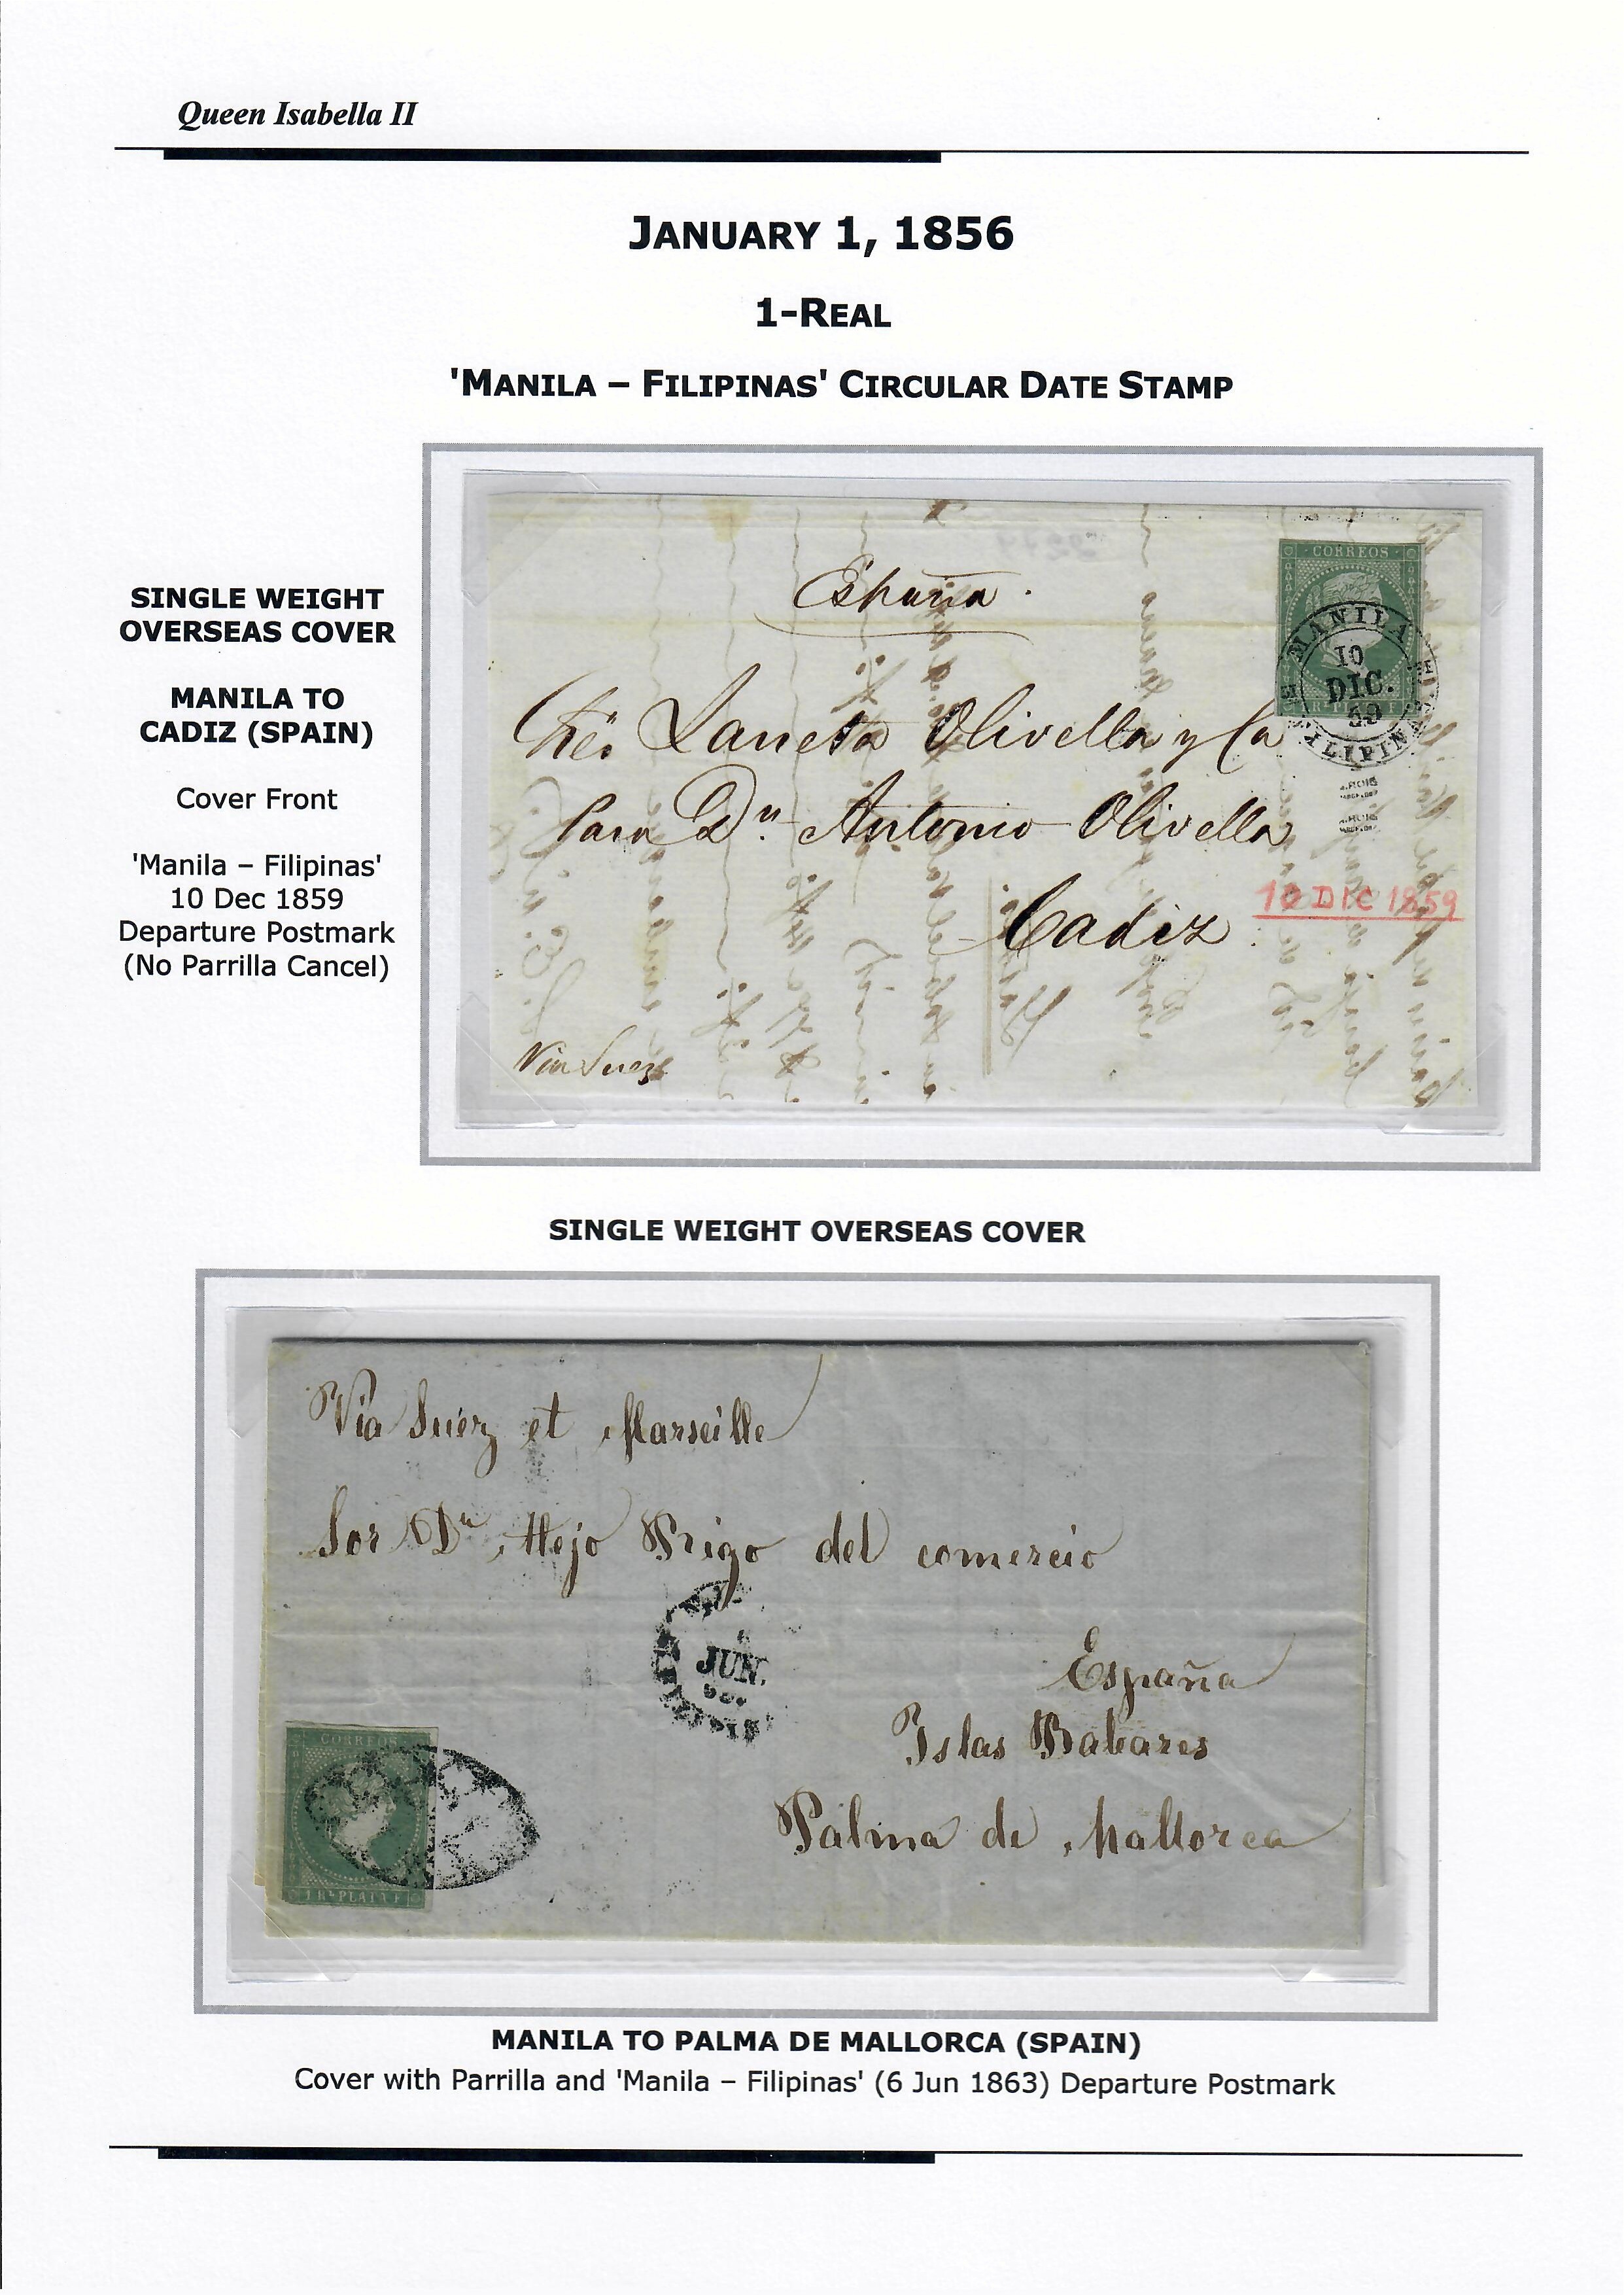 Queen Isabella II
JANUARY 1, 1856
1-REAL
'MANILA – FILIPINAS' CIRCULAR DATE STAMP
SINGLE WEIGHT
OVERSEAS COVER
MANILA TO
CADIZ (SPAIN)
Cover Front
'Manila – Filipinas'
10 Dec 1859
Departure Postmark
(No Parrilla Cancel)
España.
CORREOS
MANILA
10
DIC.
59
FILIPINAS
Olivella y Ca
Para Dn. Antonio Olivella
Cadiz
10 DIC 1859
Via Suez
SINGLE WEIGHT OVERSEAS COVER
Via Suez et Marseille
Sor Dn Alejo Rigo del comercio
JUN.
España
Islas Baleares
Palma de Mallorca
CORREOS
1 Rl PLATA F
MANILA TO PALMA DE MALLORCA (SPAIN)
Cover with Parrilla and 'Manila – Filipinas' (6 Jun 1863) Departure Postmark